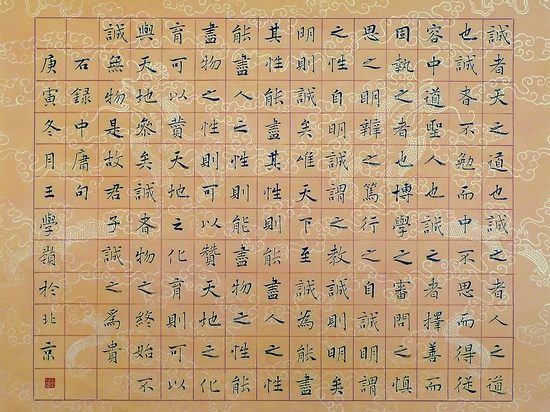 誠者天之道也誠之者人之道
也誠者不勉而中不思而得從
容中道聖人也誠之者擇善而
固執之者也博學之審問之慎
思之明辨之篤行之自誠明謂
之性自明誠謂之教誠則明矣
明則誠矣唯天下至誠為能盡
其性能盡其性則能盡人之性
能盡人之性則能盡物之性能
盡物之性則可以贊天地之化
育可以贊天地之化育則可以
與天地參矣誠者物之終始不
誠無物是故君子誠之為貴
右録中庸句
庚寅冬月王學嶺於北京